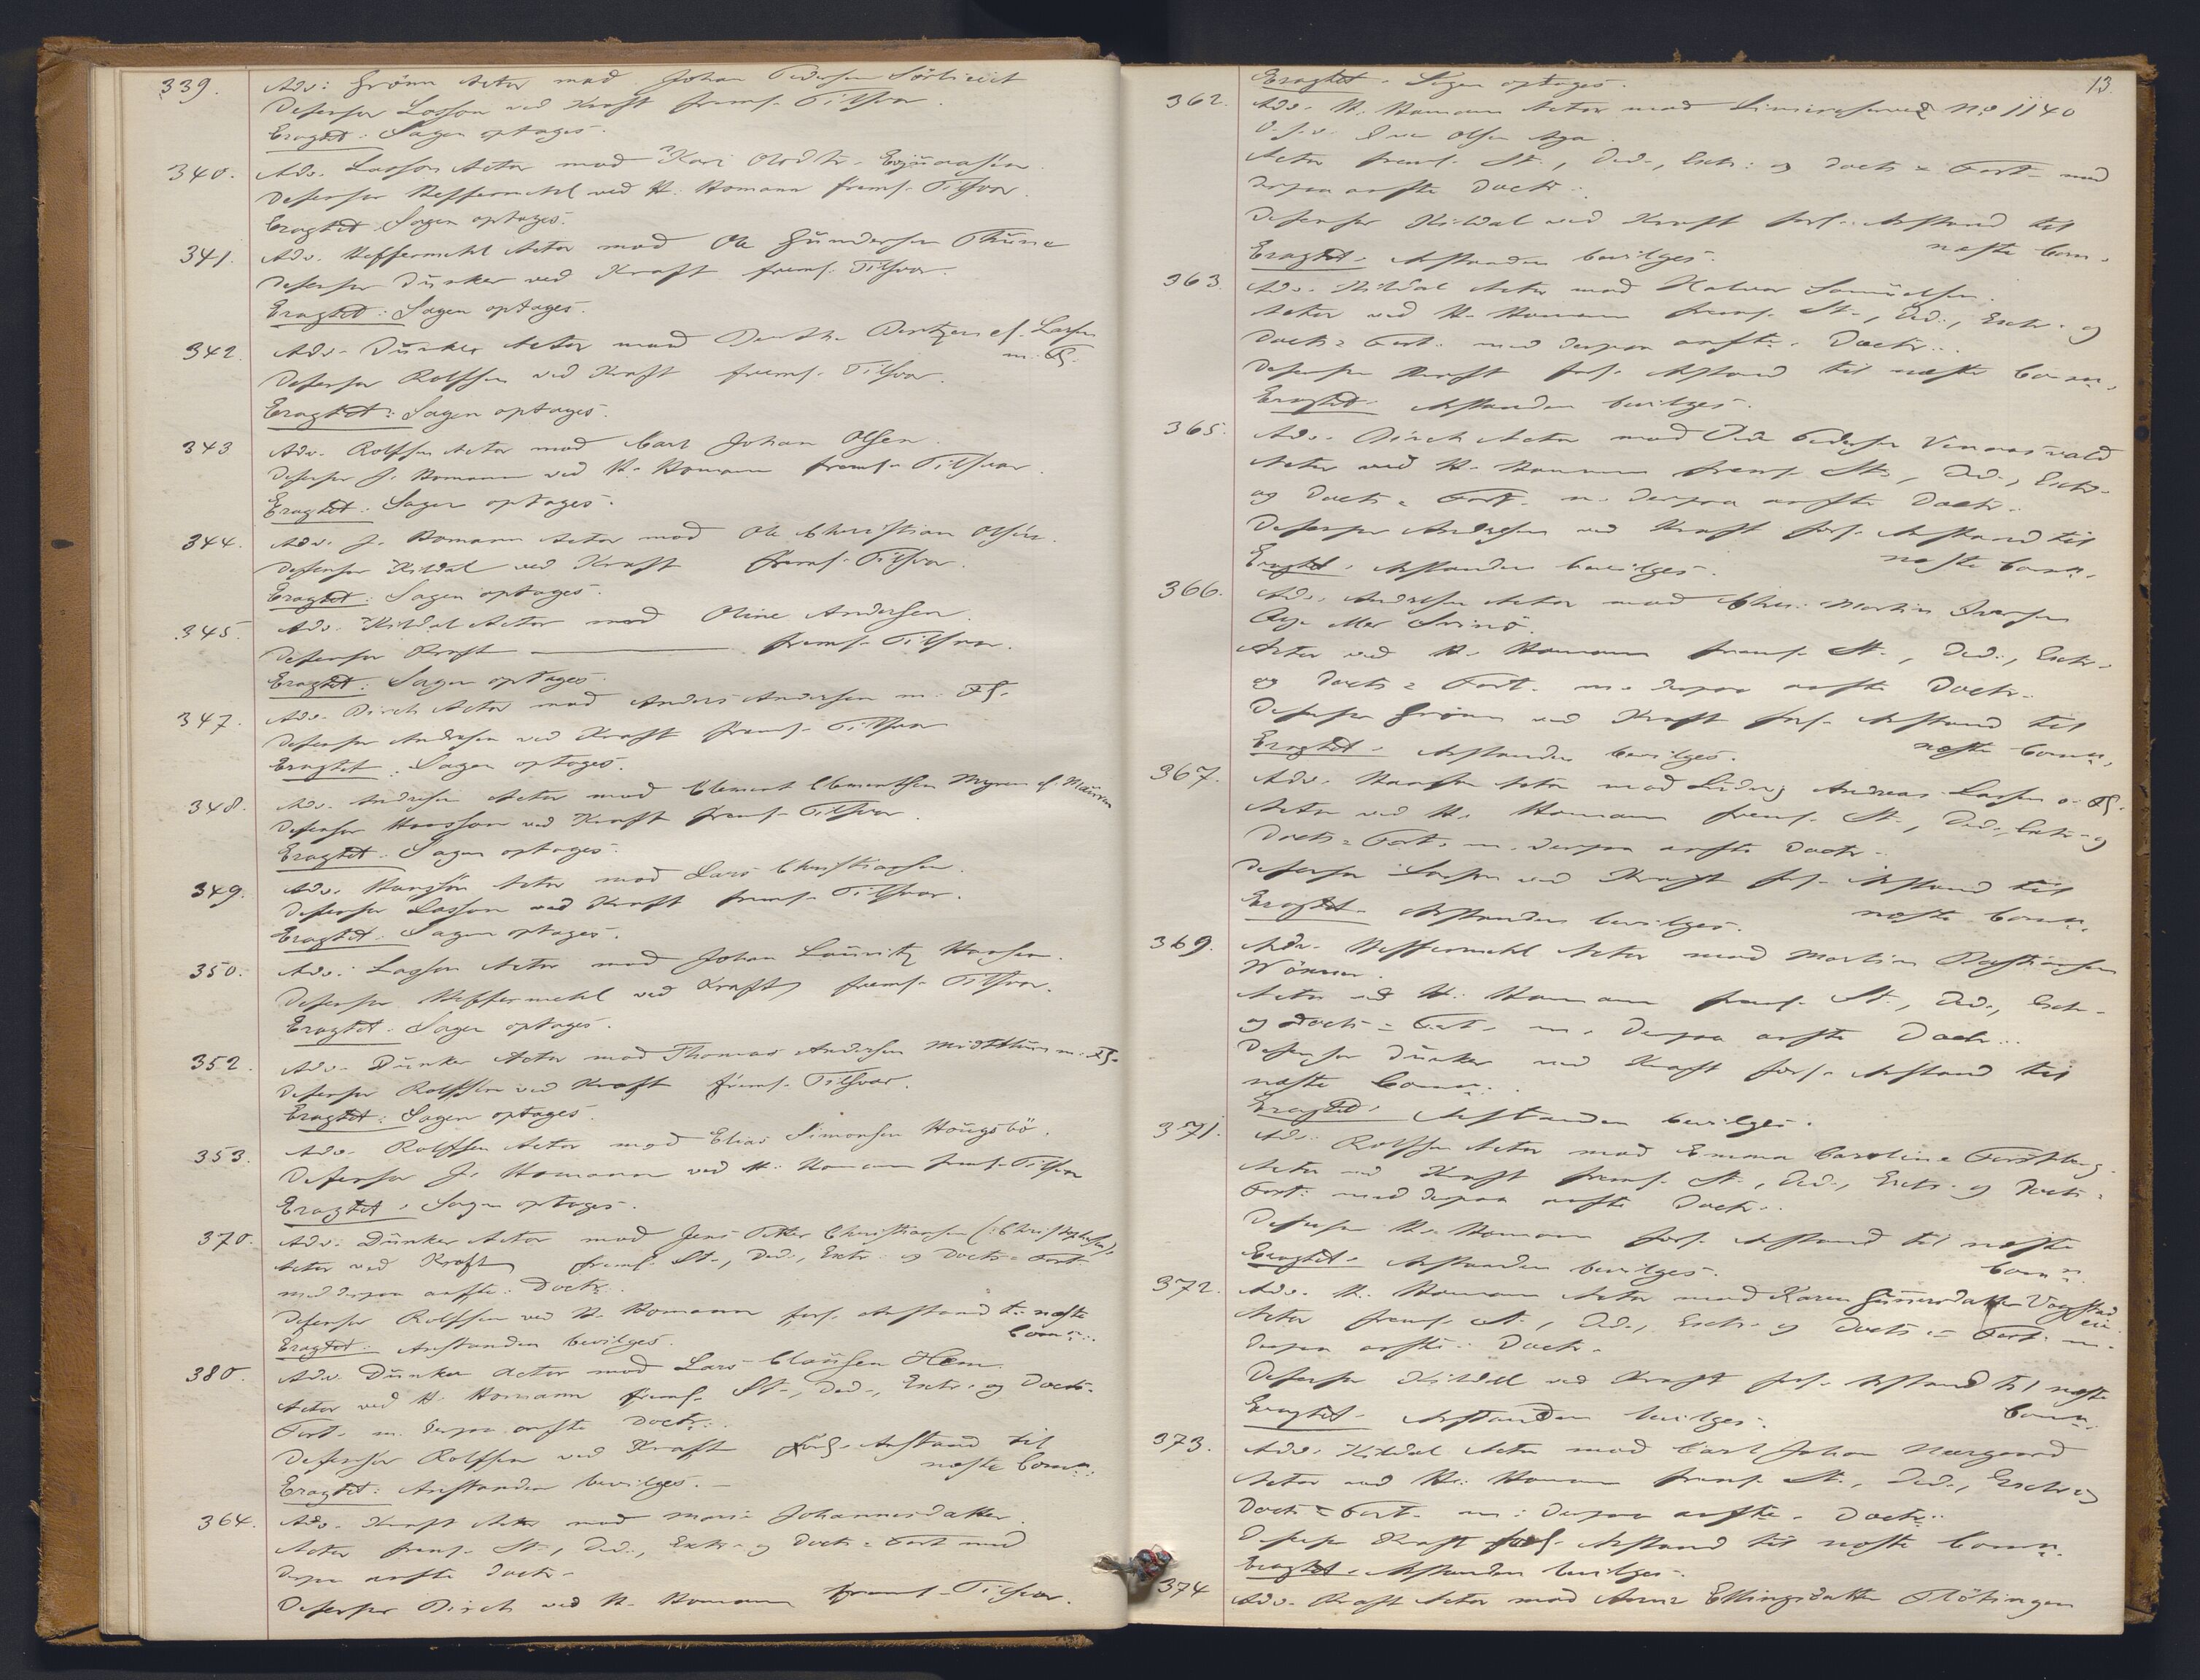 339. Adv: Grönn Actor mod Johan Pedersen
Defensor Lasson ved Kraft frems. Tilsvar.
Eragtet: Sagen optages.
340. Adv. Lasson Actor mod Kari
Defensor Heffermehl ved H. Homann frems. Tilsvar.
Eragtet: Sagen optages.
341. Adv. Heffermehl Actor mod Ole Gundersen Thune
Defensor Dunker ved Kraft frems. Tilsvar.
Eragtet: Sagen optages.
342. Adv. Dunker Actor mod Berntzen el. Larsen
m. Fl.
Defensor Rolfsen ved Kraft frems. Tilsvar.
Eragtet: Sagen optages.
343 Adv. Rolfsen Actor mod Carl Johan Olsen.
Defensor J. Homann ved H. Homann frems. Tilsvar.
Eragtet: Sagen optages.
344. Adv. J. Homann Actor mod Ole Christian Olsen.
Defensor Kildal ved Kraft frems. Tilsvar.
Eragtet: Sagen optages.
345. Adv. Kildal Actor mod Oline Andersen.
Defensor Kraft frems. Tilsvar.
Eragtet: Sagen optages.
347. Adv. Birch Actor mod Anders Andersen m. Fl.
Defensor Andresen ved Kraft frems. Tilsvar
Eragtet: Sagen optages.
348. Adv. Andresen Actor mod Clement Clementsen Myren el. Mauren
Defensor Hansson ved Kraft frems. Tilsvar.
Eragtet: Sagen optages.
349. Adv. Hansson Actor mod Lars Christiansen.
Defensor Lasson ved Kraft frems. Tilsvar.
Eragtet: Sagen optages.
350. Adv: Lasson Actor mod Johan Lauritz Hansen.
Defensor Heffermehl ved Kraft frems. Tilsvar.
Eragtet: Sagen optages.
352. Adv. Dunker Actor mod Thomas Andersen Midtthun m. Fl.
Defensor Rolfsen ved Kraft frems. Tilsvar.
Eragtet: Sagen optages.
353. Adv. Rolfsen Actor mod Elias Simonsen Hougsbö.
Defensor J. Homann ved H. Homann frems. Tilsvar
Eragtet: Sagen optages.
370. Adv. Dunker Actor mod Jens Petter Christiansen (: Christophersen)
Actor ved Kraft frems. St., Ded., Extr. og Docts. Fort.
med derpaa anfte. Doctr.
Defensor Rolfsen ved H. Homann fors. Anstand til næste
Comn.
Eragtet: Anstanden bevilges.
380. Adv. Dunker Actor mod Lars Clausen Hem.
Actor ved H. Homann frems. St., Ded., Extr. og Docts.
Fort. m. derpaa anfte Doctr.
Defensor Rolfsen ved Kraft fors. Anstand til
næste Comn.
Eragtet: Anstanden bevilges.
364. Adv. Kraft Actor mod Marie Johannesdatter.
Actor frems. St., Ded., Extr. og Docts. Fort med
derpaa anfte Doctr.
Defensor Birch ved H. Homann frems. Tilsvar.
13.
Eragtet. Sagen optages.
362. Adv. H. Homann Actor mod No 1140
Iver Olsen Aga.
Actor frems. St., Ded., Extr: og Docts. Fort. med
derpaa anfte Doctr.
Defensor Kildal ved Kraft fors. Anstand til
næste Comn.
Eragtet. Anstanden bevilges.
363. Adv. Kildal Actor mod Halvor Samuelsen.
Actor ved H. Homann frems. St., Ded., Extr. og
Docts. Fort. med derpaa anfte. Doctr.
Defensor Kraft fors. Anstand til næste Comn.
Eragtet. Anstanden bevilges.
365. Adv. Birch Actor mod Pedersen
Actor ved H. Homann frems. St., Ded., Extr.
og Docts. Fort. m. derpaa anfte Doctr.
Defensor Andresen ved Kraft fors. Anstand til
næste Comn.
Eragtet. Anstanden bevilges.
366. Adv. Andresen Actor mod Chr. Martin Iversen
eller
Actor ved H. Homann frems. St., Ded., Extr.
og Docts. Fort. m. derpaa anfte Doctr.
Defensor Grönn ved Kraft fors. Anstand til
næste Comn.
Eragtet. Anstanden bevilges.
367. Adv. Hansson Actor mod Ludvig Andreas Larsen o. Fl.
Actor ved H. Homann frems. St., Ded., Extr. og
Docts. Fort. m. derpaa anfte Doctr.
Defensor Lasson ved Kraft fors. Anstand til
næste Comn.
Eragtet. Anstanden bevilges.
369. Adv. Heffermehl Actor mod Martin Bastiansen
Actor ved H. Homann frems. St., Ded., Extr.
og Docts. Fort. m. derpaa anfte Doctr.
Defensor Dunker ved Kraft fors. Anstand til
næste Comn.
Eragtet. Anstanden bevilges.
371. Adv. Rolfsen Actor mod Emma Caroline
Actor ved Kraft frems. St., Ded., Extr. og Docts.
Fort. med derpaa anfte Doctr.
Defensor H. Homann fors. Anstand til næste
Comn.
Eragtet. Anstanden bevilges.
372. Adv. H. Homann Actor mod Karen Gunnersdatter
Actor frems. St., Ded., Extr. og Docts. Fort. m.
derpaa anfte. Doctr.
Defensor Kildal ved Kraft fors. Anstand til næste
Comn.
Eragtet. Anstanden bevilges.
373. Adv. Kildal Actor mod Carl Johan Neergaard
Actor ved H. Homann frems. St., Ded., Extr. og
Docts. Fort. m. derpaa anfte. Doctr.
Defensor Kraft fors. Anstand til næste Comn.
Eragtet. Anstanden bevilges.
374 Adv. Kraft Actor mod Anne Ellingsdatter